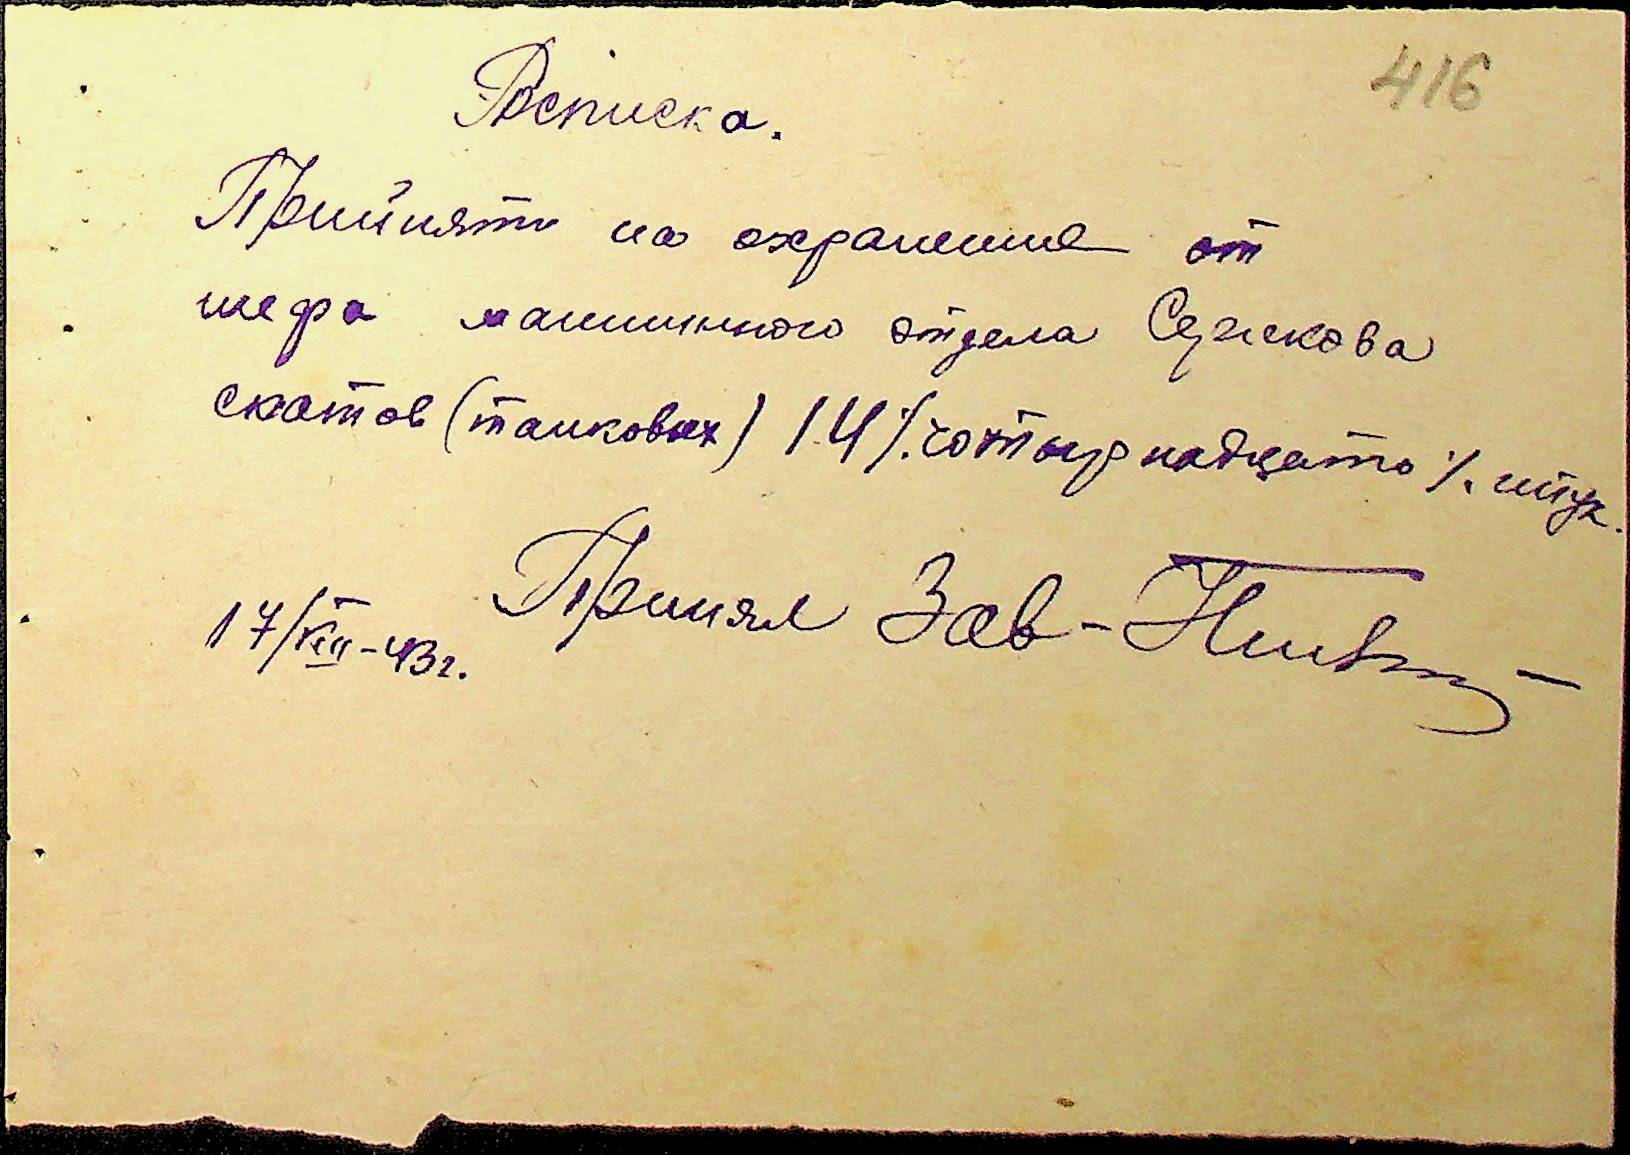 416
Росписка.
Прийнято на охранение от
шефа машинного отдела Сержкова
скатов (танковых) 14 /. чотырнадцать /. штук.
17/VIII-43г. Принял Зав-